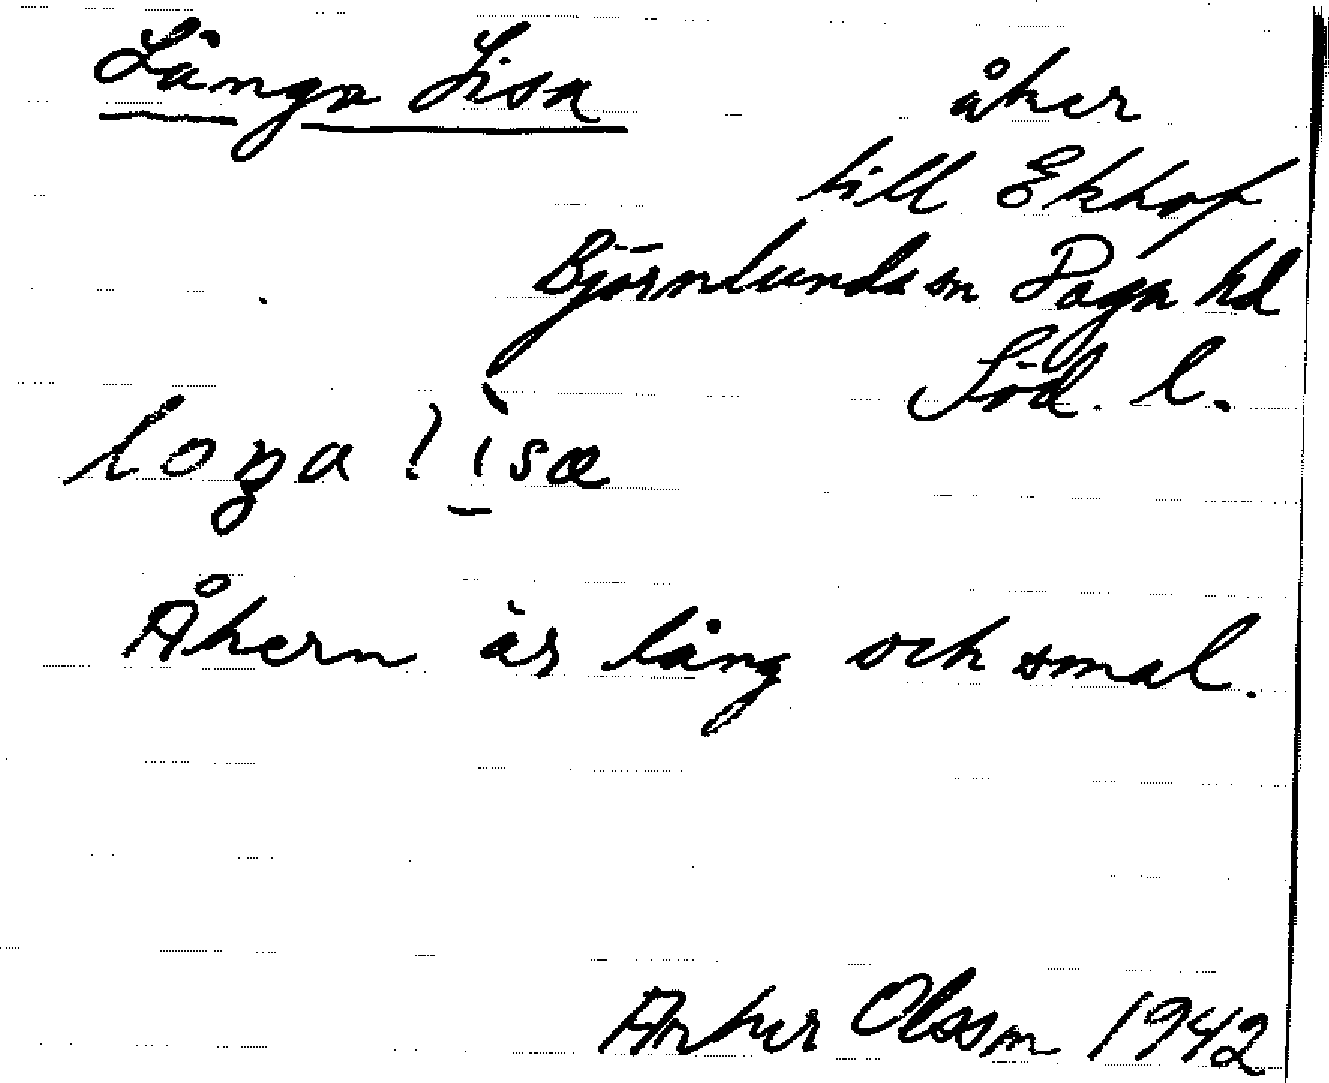 Långa Lisa
åker
till Ekhof
Björnlunda sn Daga hd
Söd. l.
Åkern är lång och smal.
Anker Olsson 1942